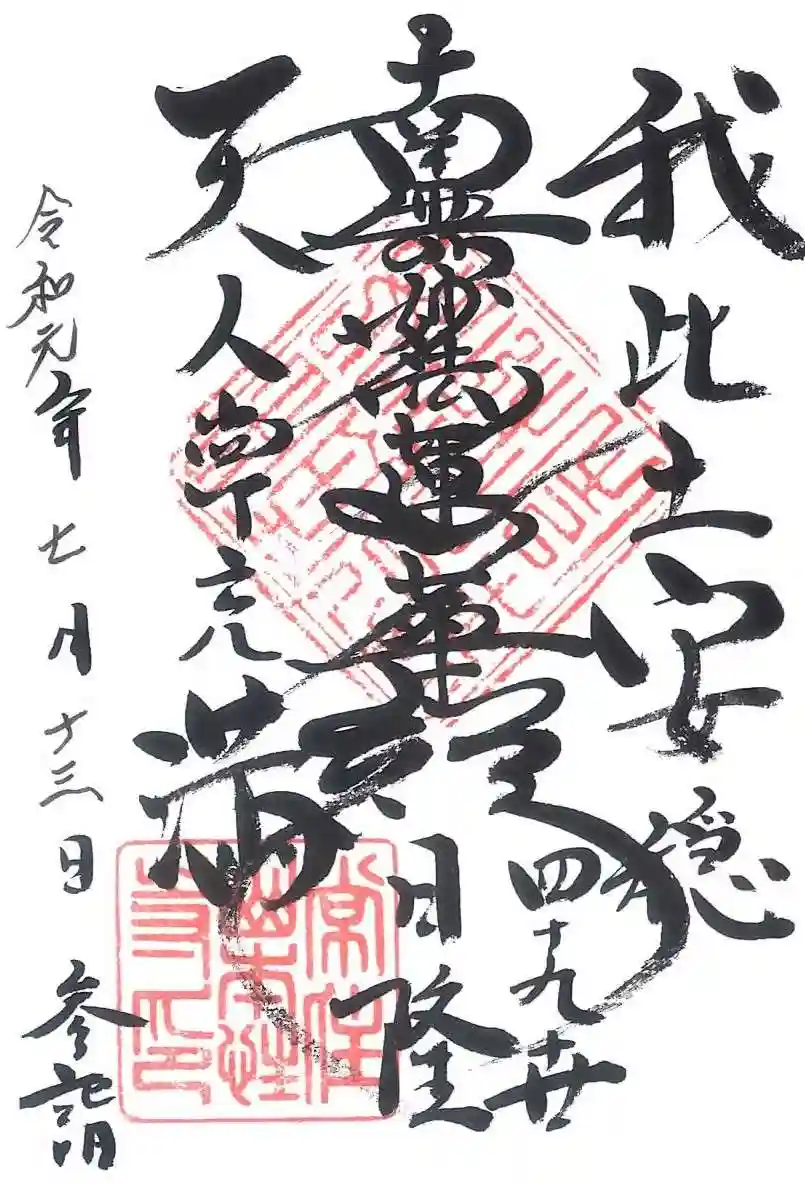 我此土安穏
南無妙法蓮華経
四十九世
日隆
天人常充満
令和元年七月十三日参詣